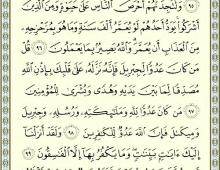 ٩٥ وَلَتَجِدَنَّهُمْ أَحْرَصَ ٱلنَّاسِ عَلَىٰ حَيَوٰةٍ وَمِنَ ٱلَّذِينَ
أَشْرَكُوا۟ يَوَدُّ أَحَدُهُمْ لَوْ يُعَمَّرُ أَلْفَ سَنَةٍ وَمَا هُوَ بِمُزَحْزِحِهِۦ
مِنَ ٱلْعَذَابِ أَن يُعَمَّرَ وَٱللَّهُ بَصِيرٌۢ بِمَا يَعْمَلُونَ ٩٦ قُلْ
مَن كَانَ عَدُوًّا لِّجِبْرِيلَ فَإِنَّهُۥ نَزَّلَهُۥ عَلَىٰ قَلْبِكَ بِإِذْنِ ٱللَّهِ
مُصَدِّقًا لِّمَا بَيْنَ يَدَيْهِ وَهُدًى وَبُشْرَىٰ لِلْمُؤْمِنِينَ
٩٧ مَن كَانَ عَدُوًّا لِّلَّهِ وَمَلَٰٓئِكَتِهِۦ وَرُسُلِهِۦ وَجِبْرِيلَ
وَمِيكَىٰلَ فَإِنَّ ٱللَّهَ عَدُوٌّ لِّلْكَٰفِرِينَ ٩٨ وَلَقَدْ أَنزَلْنَآ
إِلَيْكَ ءَايَٰتٍۭ بَيِّنَٰتٍ وَمَا يَكْفُرُ بِهَآ إِلَّا ٱلْفَٰسِقُونَ ٩٩